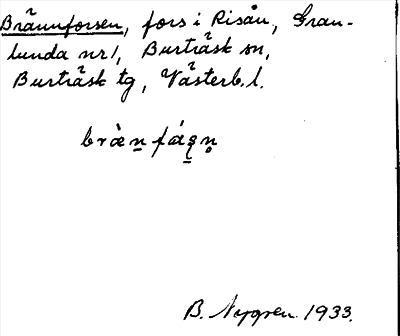 Brännforsen, fors i Risån, Gran-
lunda nr 1, Burträsk sn,
Burträsk tg, Västerb. l.
bræ̀n̲fáʂn̥
B. Nygren 1933.